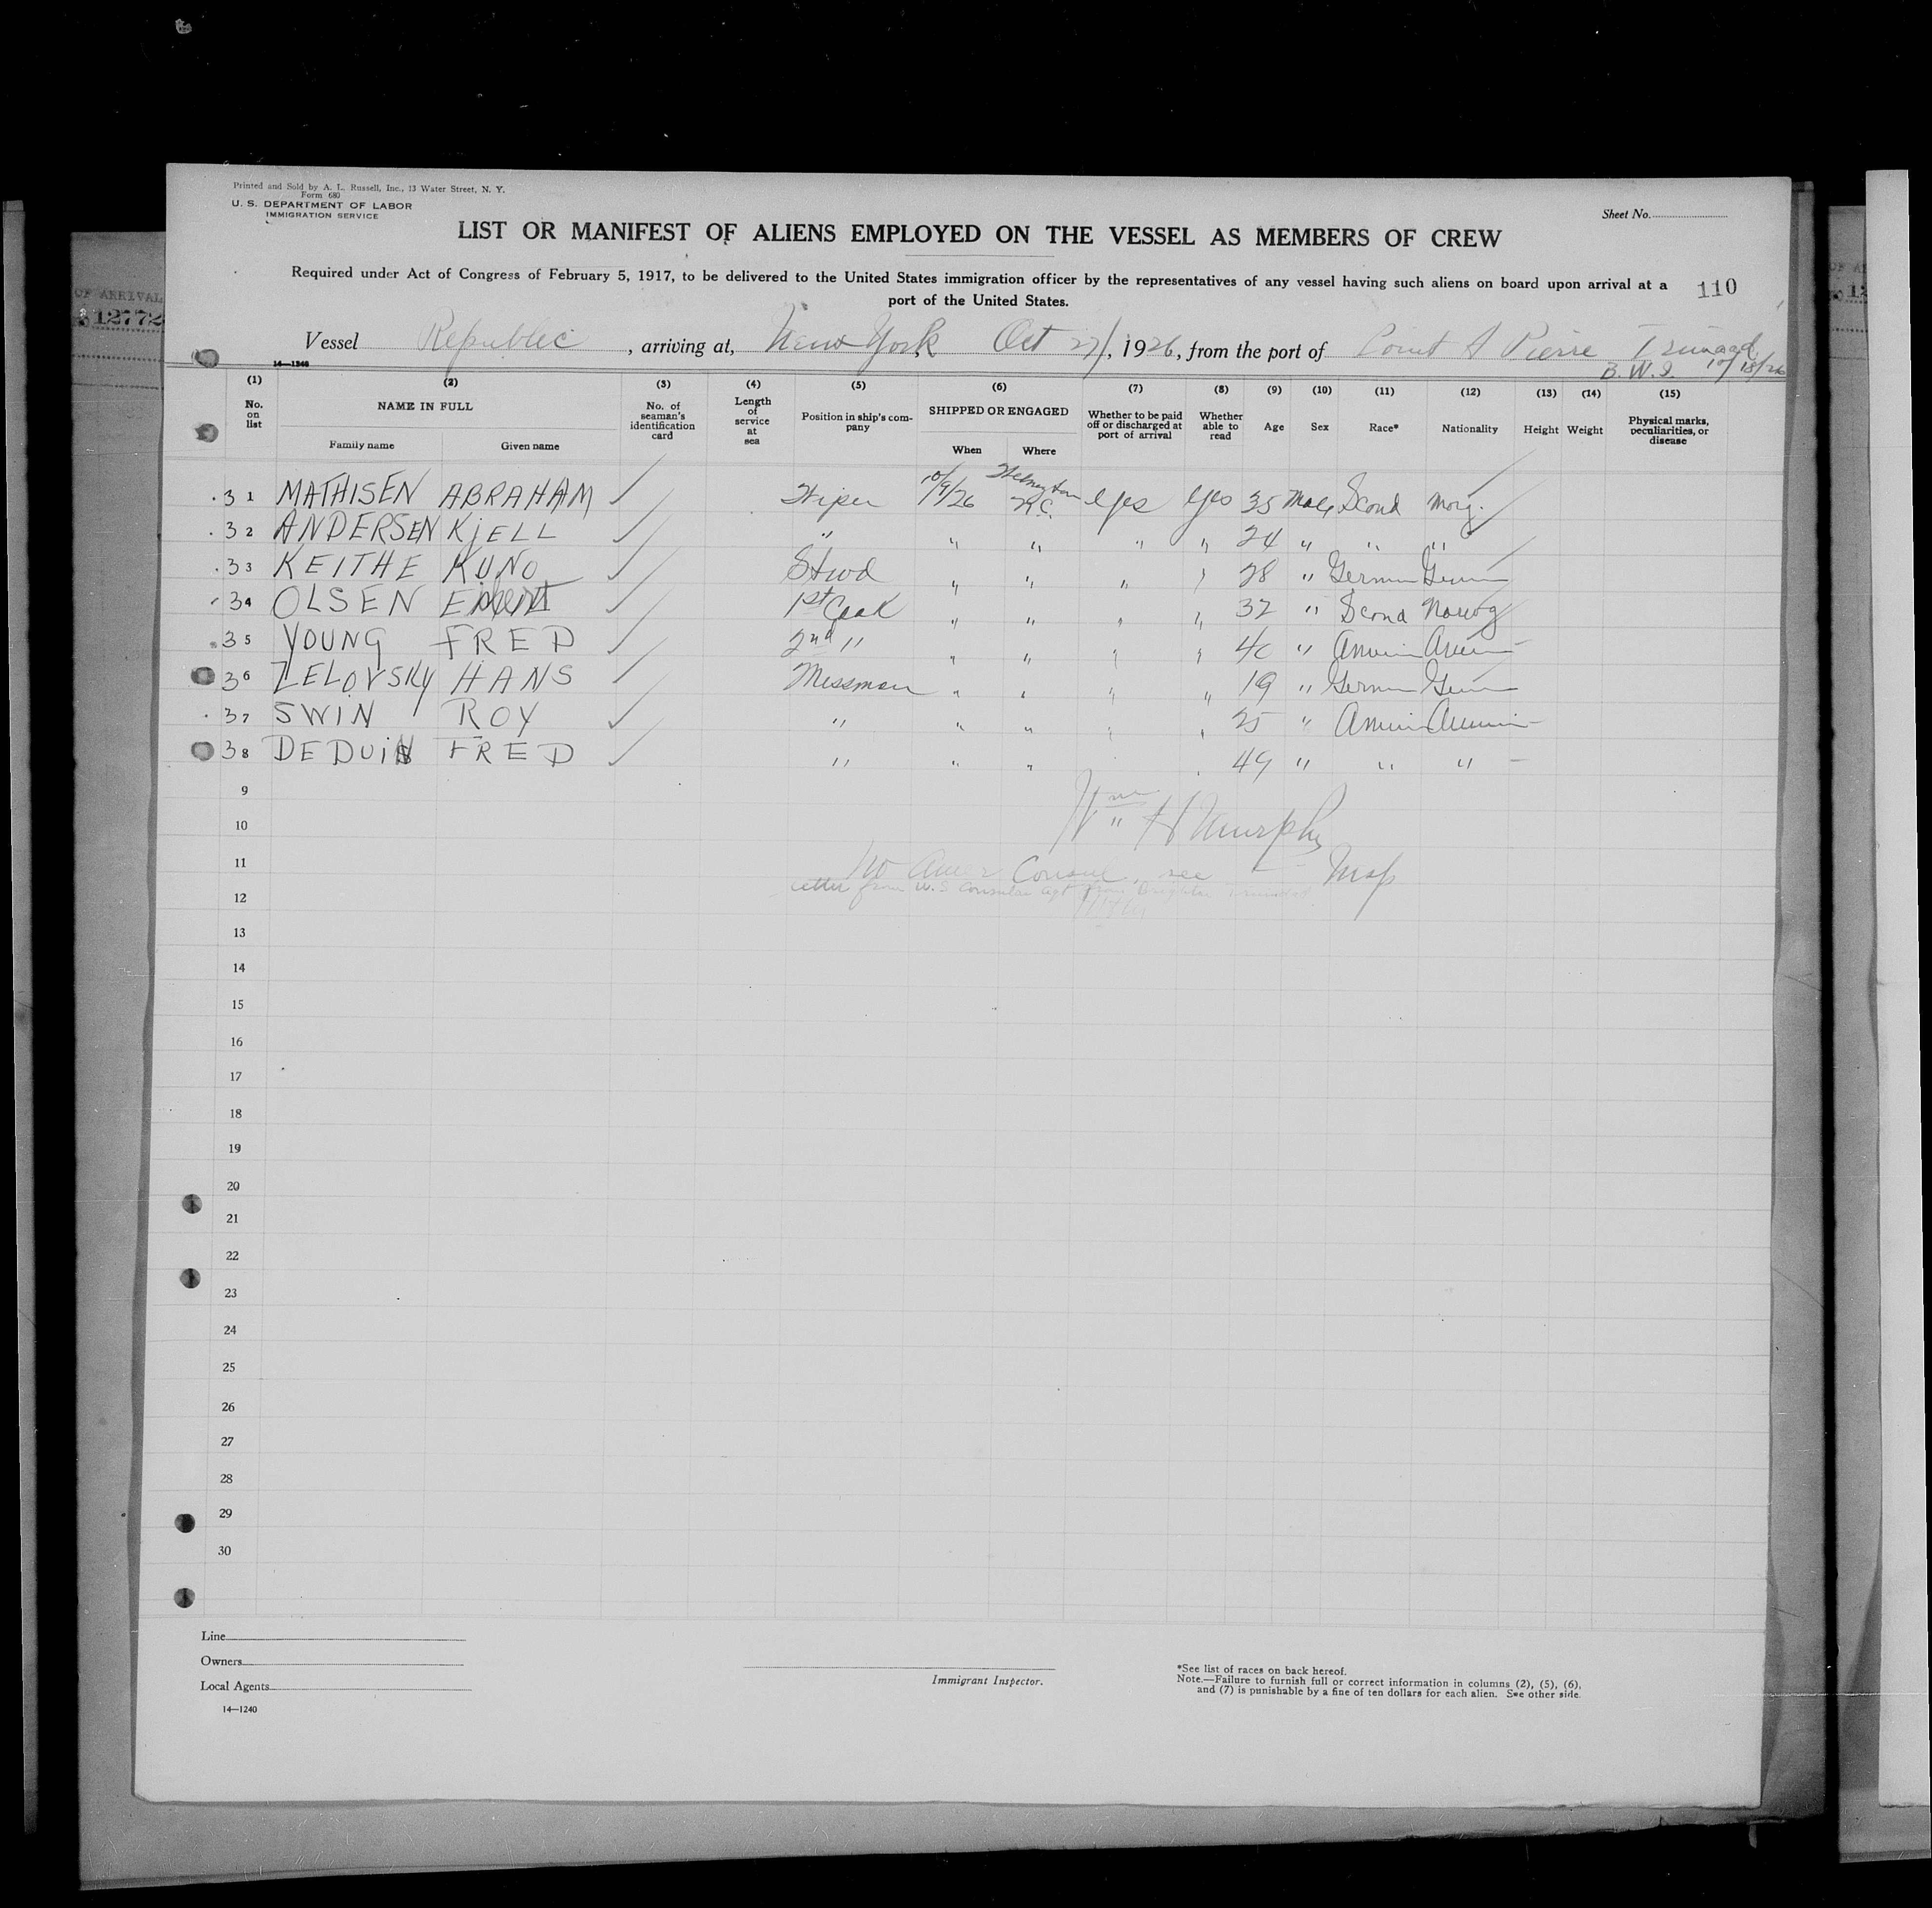 Printed and Sold by A. L. Russell, Inc., 13 Water Street, N. Y.
Form 680
U. S. DEPARTMENT OF LABOR
IMMIGRATION SERVICE
Sheet No.
LIST OR MANIFEST OF ALIENS EMPLOYED ON THE VESSEL AS MEMBERS OF CREW
Required under Act of Congress of February 5, 1917, to be delivered to the United States immigration officer by the representatives of any vessel having such aliens on board upon arrival at a
port of the United States.
110
OF ARRIVAL
12772
Vessel Republic, arriving at, New York Oct 27, 1926, from the port of Point A Pierre Trinidad
B.W.I. 10/18/26
14—1240
(1) (2) (3) (4) (5) (6) (7) (8) (9) (10) (11) (12) (13) (14) (15)
No. on list
NAME IN FULL
Family name Given name
No. of seaman's identification card
Length of service at sea
Position in ship's company
SHIPPED OR ENGAGED
When Where
Whether to be paid off or discharged at port of arrival
Whether able to read
Age Sex Race* Nationality Height Weight
Physical marks, peculiarities, or disease
31 MATHISEN ABRAHAM Wiper 10/9/26 Wilmington N.C. Yes Yes 35 Male Scand Norg.
32 ANDERSEN KJELL " " " " " 24 " " "
33 KEITHE KUNO Stwd " " " " 28 " German
34 OLSEN 1st Cook " " " " 32 " Scand Norwg
35 YOUNG FRED 2nd " " " " " 40 "
36 ZELOVSKY HANS Messman " " " " 19 " German
37 SWIN ROY " " " " " 25 "
38 FRED " " " 49 " " "
9
Wm H Murphy
10
11
No Amer Consul, see Insp
letter from U.S Consular Agt Brighton Trinidad
12
13
14
15
16
17
18
19
20
21
22
23
24
25
26
27
28
29
30
Line
Owners
Local Agents
14—1240
Immigrant Inspector.
*See list of races on back hereof.
Note.—Failure to furnish full or correct information in columns (2), (5), (6),
and (7) is punishable by a fine of ten dollars for each alien. See other side.